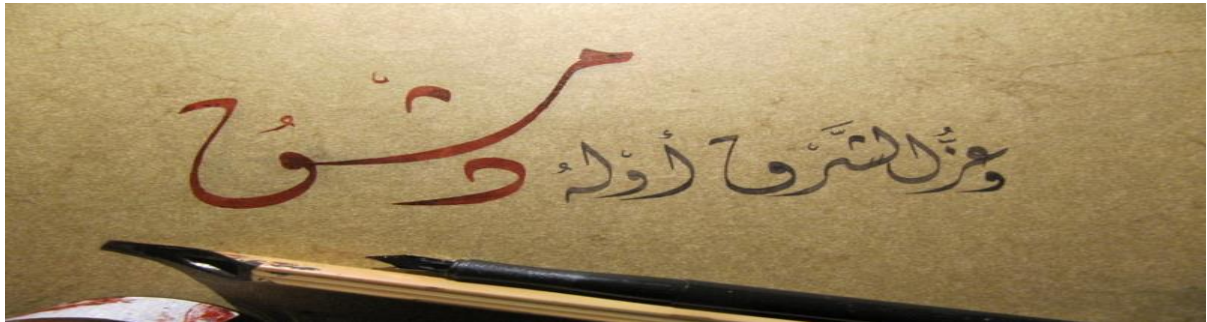 وعزُّ الشَّرقْ أوّلهُ دمشّقُ